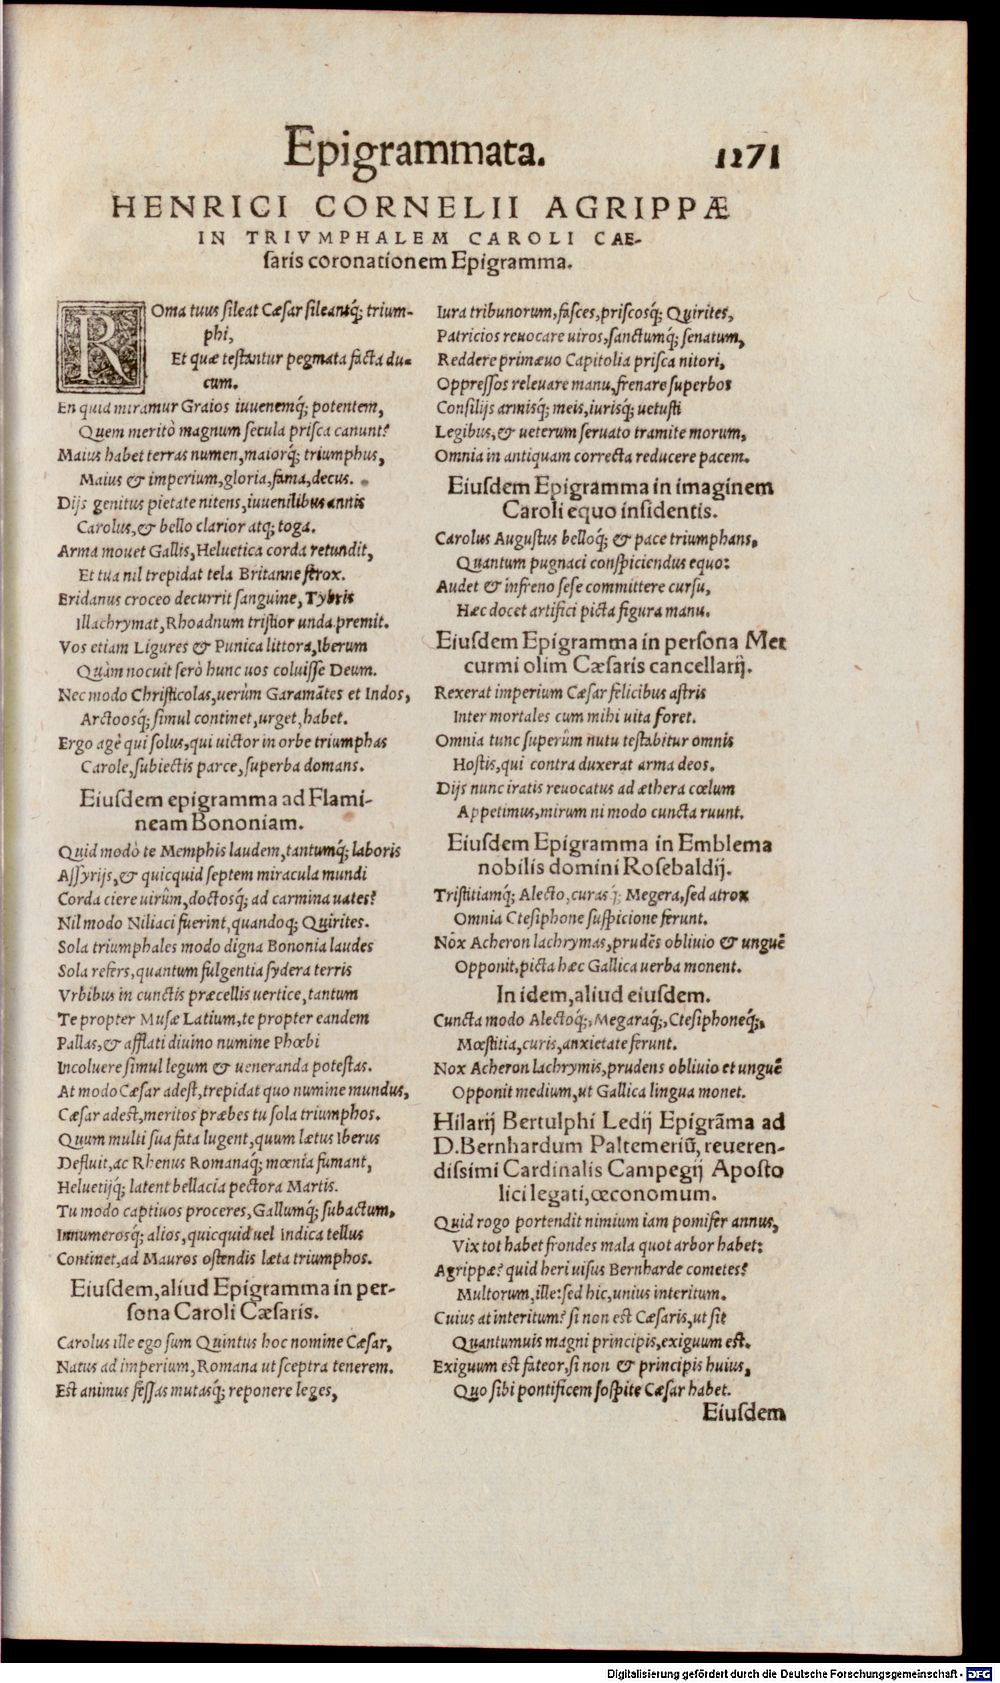 Epigrammata. 1271
HENRICI CORNELII AGRIPPÆ
IN TRIVMPHALEM CAROLI CAE-
ſaris coronationem Epigramma.
ROma tuus ſileat Cæſar ſileantq́; trium-
phi,
Et quæ teſtantur pegmata facta du-
cum.
En quid miramur Graios iuuenemq́; potentem,
Quem meritò magnum ſecula priſca canunt?
Maius habet terras numen, maiorq́; triumphus,
Maius & imperium, gloria, fama, decus.
Dijs genitus pietate nitens, iuuenilibus annis
Carolus, & bello clarior atq; toga.
Arma mouet Gallis, Heluetica corda retundit,
Et tua nil trepidat tela Britanne ferox.
Eridanus croceo decurrit ſanguine, Tybris
Illachrymat, Rhoadnum triſtior unda premit.
Vos etiam Ligures & Punica littora, Iberum
Quàm nocuit ſerò hunc uos coluiſſe Deum.
Nec modo Chriſticolas, uerùm Garamãtes et Indos,
Arctoosq́; ſimul continet, urget, habet.
Ergo agè qui ſolus, qui uictor in orbe triumphas
Carole, ſubiectis parce, ſuperba domans.
Eiuſdem epigramma ad Flami-
neam Bononiam.
Quid modò te Memphis laudem, tantumq́; laboris
Aſſyrijs, & quicquid ſeptem miracula mundi
Corda ciere uirûm, doctosq́; ad carmina uates?
Nil modo Niliaci fuerint, quandoq; Quirites.
Sola triumphales modo digna Bononia laudes
Sola refers, quantum fulgentia ſydera terris
Vrbibus in cunctis præcellis uertice, tantum
Te propter Muſæ Latium, te propter eandem
Pallas, & afflati diuino numine Phœbi
Incoluere ſimul legum & ueneranda poteſtas.
At modo Cæſar adeſt, trepidat quo numine mundus,
Cæſar adeſt, meritos præbes tu ſola triumphos.
Quum multi ſua fata lugent, quum lætus Iberus
Defluit, ac Rhenus Romanaq́; mœnia fumant,
Heluetijq́; latent bellacia pectora Martis.
Tu modo captiuos proceres, Gallumq́; ſubactum,
Innumerosq́; alios, quicquid uel Indica tellus
Continet, ad Mauros oſtendis læta triumphos.
Eiuſdem, aliud Epigramma in per-
ſona Caroli Cæſaris.
Carolus ille ego ſum Quintus hoc nomine Cæſar,
Natus ad imperium, Romana ut ſceptra tenerem.
Eſt animus feſſas mutasq́; reponere leges,
Iura tribunorum, faſces, priſcosq́; Quirites,
Patricios reuocare uiros, ſanctumq́; ſenatum,
Reddere primæuo Capitolia priſca nitori,
Oppreſſos releuare manu, frenare ſuperbos
Conſilijs armisq́; meis, iurisq́; uetuſti
Legibus, & ueterum ſeruato tramite morum,
Omnia in antiquam correcta reducere pacem.
Eiuſdem Epigramma in imaginem
Caroli equo inſidentis.
Carolus Auguſtus belloq́; & pace triumphans,
Quantum pugnaci conſpiciendus equo:
Audet & infreno ſeſe committere curſu,
Hæc docet artifici picta figura manu.
Eiuſdem Epigramma in perſona Mer
curmi olim Cæſaris cancellarij.
Rexerat imperium Cæſar felicibus aſtris
Inter mortales cum mihi uita foret.
Omnia tunc ſuperûm nutu teſtabitur omnis
Hoſtis, qui contra duxerat arma deos.
Dijs nunc iratis reuocatus ad æthera cœlum
Appetimus, mirum ni modo cuncta ruunt.
Eiuſdem Epigramma in Emblema
nobilis domini Roſebaldij.
Triſtitiamq́; Alecto, curas q́; Megera, ſed atrox
Omnia Cteſiphone ſuſpicione ferunt.
Nox Acheron lachrymas, prudẽs obliuio & unguẽ
Opponit, picta hæc Gallica uerba monent.
In idem, aliud eiuſdem.
Cuncta modo Alectoq́;, Megaraq́;, Cteſiphoneq́;,
Mœſtitia, curis, anxietate ferunt.
Nox Acheron lachrymis, prudens obliuio et unguẽ
Opponit medium, ut Gallica lingua monet.
Hilarij Bertulphi Ledij Epigrãma ad
D. Bernhardum Paltemeriũ, reueren-
diſſimi Cardinalis Campegij Apoſto
lici legati, œconomum.
Quid rogo portendit nimium iam pomifer annus,
Vix tot habet frondes mala quot arbor habet:
Agrippæ? quid heri uiſus Bernharde cometes?
Multorum, ille: ſed hic, unius interitum.
Cuius at interitum? ſi non eſt Cæſaris, ut ſit
Quantumuis magni principis, exiguum eſt.
Exiguum eſt fateor, ſi non & principis huius,
Quo ſibi pontificem ſoſpite Cæſar habet.
Eiuſdem
Digitalisierung gefördert durch die Deutsche Forschungsgemeinschaft - DFG